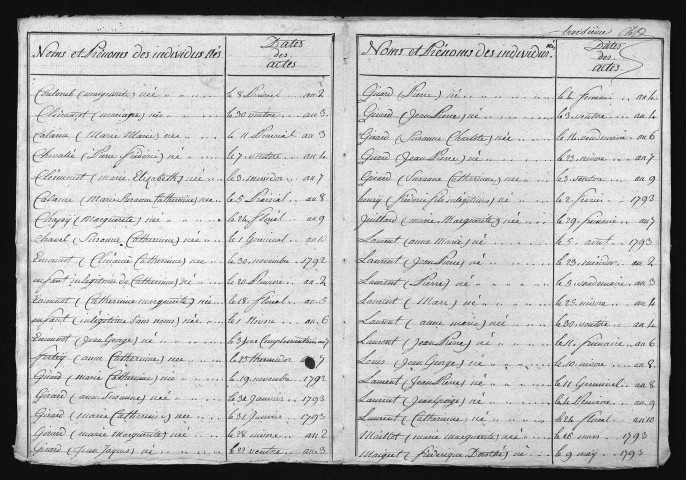 Noms et Prénoms des individus Nés
Dates des actes
Coulomb (marguerite) née le 8 Prairial an 2
Clemencot (mariagne) née le 30 ventôse an 3
Calame (Marie Marie) née le 11 Prairial an 3
Chevalié (Pierre frédéric) né le 7 ventôse an 4
Clémencot (marie Elizabeth) née le 3 messidor an 7
Calame (Marie Suzanne Catherine) née le 5 Prairial an 8
(Marguerite) née le 24 floréal an 9
(Suzanne Catherine) née le 1 Germinal an 10
Emonnot (Clémence Catherine) née le 30 novembre 1792
enfant inlégitime de (Catherinne) né le 20 Pluviose an 2
Emonnot (Catherinne marguerite) née le 18 floréal an 5
enfant (inlégitime sans noms) né le 1 Nivose an 6
Emonnot (Jean George) né le 3 jour Complémentaire an 7
(anne Catherinne) née le 25 thermidor an 7
Girard (marie Catherinne) née le 19 novembre 1792
Girard (anne Suzanne) née le 31 Janvier 1793
Girard (marie Catherinne) née le 31 Janvier 1793
Girard (marie Marguerite) née le 28 nivose an 2
Girard (Jean Jaques) né le 22 ventôse an 3
troisième
Noms et Prénoms des individus nés
Dates des actes
Girard (Pierre) né le 4 frimaire an 4
Girard (Jean Pierre) né le 3 ventôse an 4
Girard (Suzanne Charlotte) née le 11 vendemiaire an 6
Girard (Jean Pierre) né le 23 nivose an 7
Girard (Suzanne Catherinne) née an 9
henry (frédéric fils inlégitime) né le 2 fevrier 1793
Juillard (marie Marguerite) née le 29 frimaire an 7
Laurent (anne Marie) née le 5 avril 1793
Laurent (Jean Pierre) né le 23 messidor an 2
Laurent (Pierre) né le 3 vendemiaire an 3
Laurent (Marc) né le 25 nivose an 4
Laurent (anne marie) née le 30 ventôse an 4
Laurent (Jean Pierre) né le 11 frimaire an 6
Louis (Jean George) né le 10 nivose an 8
Laurent (Jean Pierre) né le 11 Germinal an 8
Laurent (Jean George) né le 4 Pluviose an 9
Laurent (Catherinne) née le 24 floréal an 10
Maillot (marie marguerite) née le 16 mars 1793
Maigret (frederique Dorothé) née le 9 may 1793